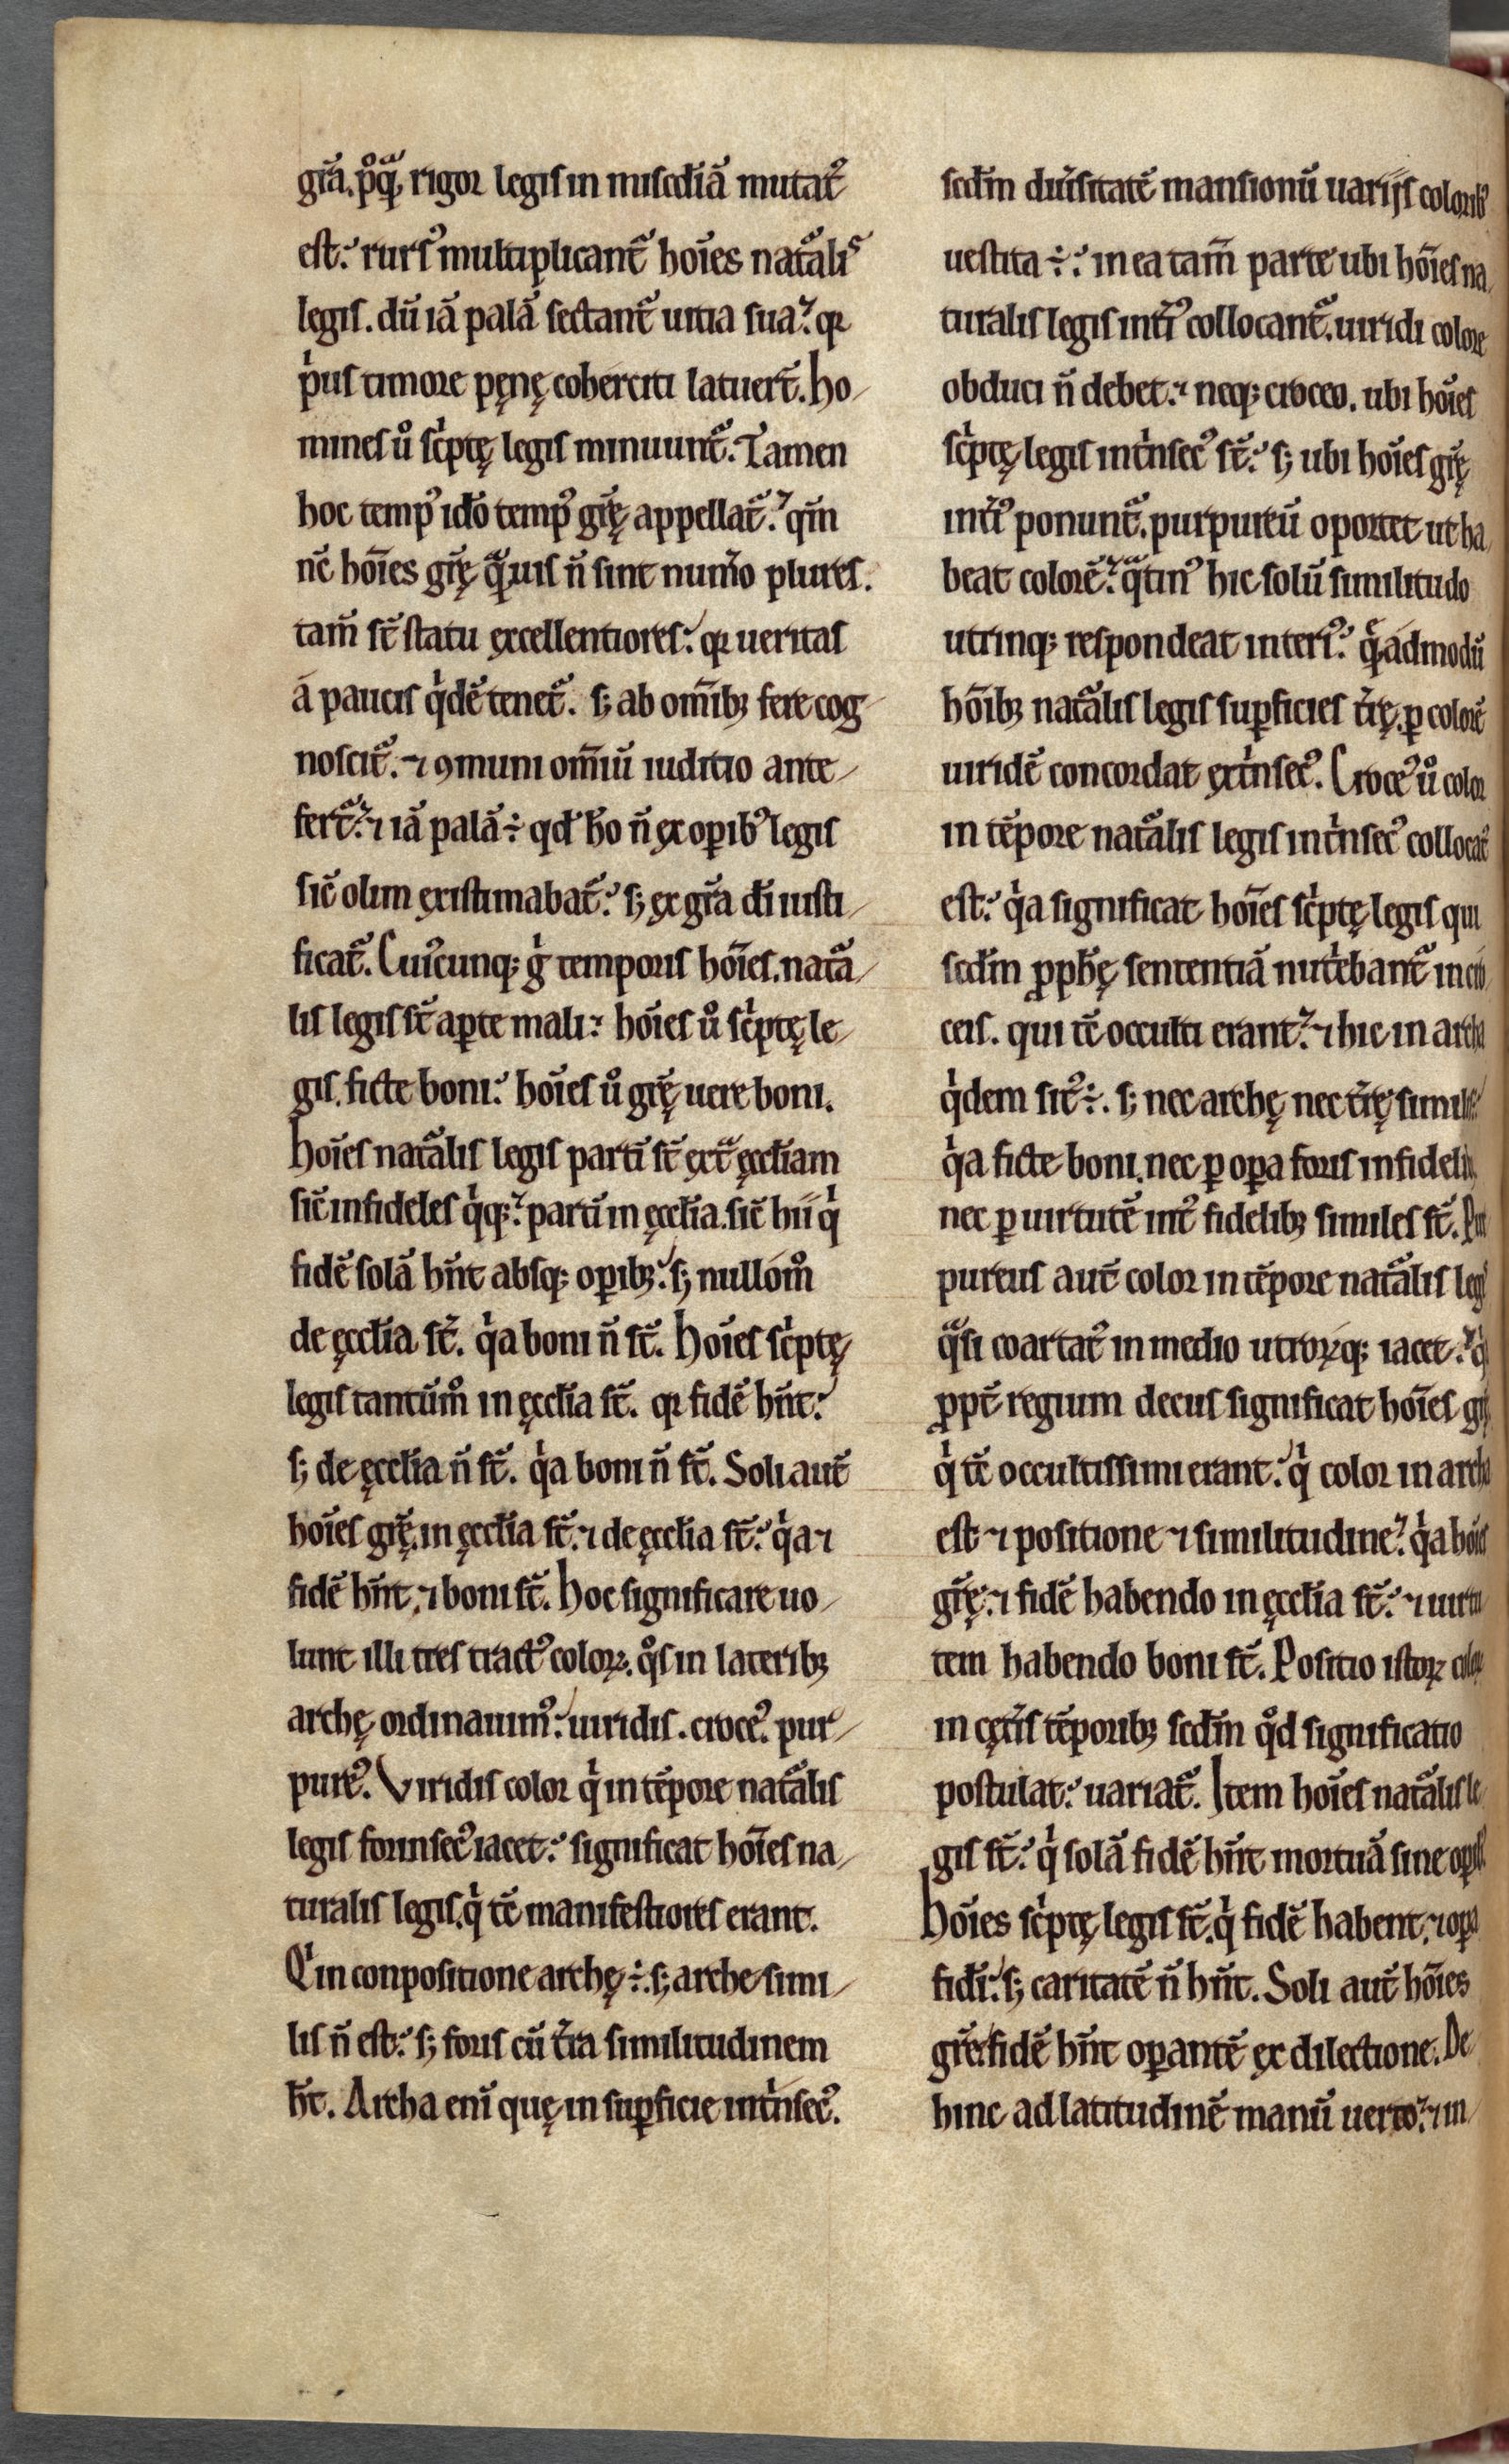 gr̄a. p̊q̃ rigor legis in misc̄diā mutat᷒
est: rurs᷒ multiplicant᷑ hoīes nat᷑alis
legis. dū iā palā sectant᷑ uitia sua: qr
pͥus timore pęnę coherciti latuert̄. Ho-
mines ů sc̄ptę legis minuunt᷑. Tamen
hoc temp᷒ id̄o temp᷒ gr̄ę appellat᷑: qm̄
nc̄ hoīes gr̄ę q̃uis n̄ sint num̄o plures.
tam̄ st̄ statu ęxcellentiores: qr ueritas
á paucis qͥdē tenet᷑. s; ab om̄ib; fere cog-
noscit᷑. ⁊ ꝯmuni om̄iū iuditio ante-
fert᷑: ⁊ iā palā ÷ qd̄ h̄o n̄ ęx oꝑib᷒ legis
sic̄ olim ęxistimabat᷑: s; ęx gr̄a dī iusti-
ficat᷑. Cui᷒cunq; gͥ temporis hoīes. nat᷑a-
lis legis st̄ aꝑte mali: hoīes ů sc̄ptę le-
gis. ficte boni: hoīes ů gr̄ę uere boni.
Hoīes nat᷑alis legis partī st̄ ęxt᷑ ęccl̄iam
sic̄ infideles qͥq;: partī in ęccl̄ia. sic̄ hii qͥ
fidē solā hn̄t absq; oꝑib;: s; nullom̊
de ęccl̄ia st̄. qͥa boni n̄ st̄. Hoīes sc̄ptę
legis tantūm̊ in ęccl̄ia st̄. qr fidē hn̄t:
s; de ęccl̄ia n̄ st̄. qͥa boni n̄ st̄. Soli aut̄
hoīes gr̄ę. in ęccl̄ia st̄. ⁊ de ęccl̄ia st̄: qͥa ⁊
fidē hn̄t, ⁊ boni st̄. Hoc significare uo-
lunt illi tres tract᷒ coloꝝ. q̊s in laterib;
archę ordinauim᷒: uiridis. croce᷒. pur-
pure᷒. Viridis color qͥ in tēpore nat᷑alis
legis forinsec᷒ iacet: significat hoīes na-
turalis legis. qͥ tc̄ manifestiores erant.
Qͥ in conpositione archę ÷. s; arche simi-
lis n̄ est: s; foris cū tr̄ra similitudinem
ht̄. Archa enī quę in suꝑficie intͥnsec᷒.
scd̄m diūsitatē mansionū uarijs colorib᷒
uestita ÷: in ea tam̄ parte ubi hoīes na-
turalis legis inti᷒ collocant᷑. uiridi colore
obduci n̄ debet: ⁊ neq; croceo. ubi hoīes
sc̄ptę legis intͥnsec᷒ st̄: s; ubi hoīes gr̄ę
inti᷒ ponunt᷑. purpureū oportet ut ha-
beat colorē: q̃tin᷒ hic solū similitudo
utrinq; respondeat interi᷒: q̄admodū
hoīb; nat᷑alis legis suꝑficies tr̄rę. ꝑ colorē
uiridē concordat ęxtͥnsec᷒. Croce᷒ ů color
in tēpore nat᷑alis legis intͥnsec᷒ collocat᷒
est: qͥa significat hoīes sc̄ptę legis qui
scd̄m ꝓph̄ę sententiā nut̄ebant᷑ in cro-
ceis. qui tc̄ occulti erant: ⁊ hic in archa
qͥdem sit᷒ ÷. s; nec archę nec tr̄rę similis:
qͥa ficte boni. nec ꝑ oꝑa foris infidelib;
nec ꝑ uirtutē int᷒ fidelib; similes st̄. Pur-
pureus aut̄ color in tēpore nat᷑alis legis
q̃si coartat᷒ in medio utroꝝq; iacet: qͥ
ꝓpt̄ regium decus significat hoīes gr̄ę
qͥ tc̄ occultissimi erant: qͥ color in archa
est ⁊ positione ⁊ similitudine: qͥa hoīes
gr̄ę. ⁊ fidē habendo in ęccl̄ia st̄: ⁊ uirtu-
tem habendo boni st̄. Positio istoꝝ coloꝝ
in cęt̄is tēporib; scd̄m q̊d significatio
postulat: uariat᷑. Item hoīes nat᷑alis le-
gis st̄: qͥ solā fidē hn̄t mortuā sine oꝑib᷒
Hoīes sc̄ptę legis st̄. qͥ fidē habent, ⁊ oꝑa
fidī: s; caritatē n̄ hn̄t. Soli aut̄ hoīes
gr̄e. fidē hn̄t oꝑantē ęx dilectione. De
hinc ad latitudinē manū uerto: ⁊ in